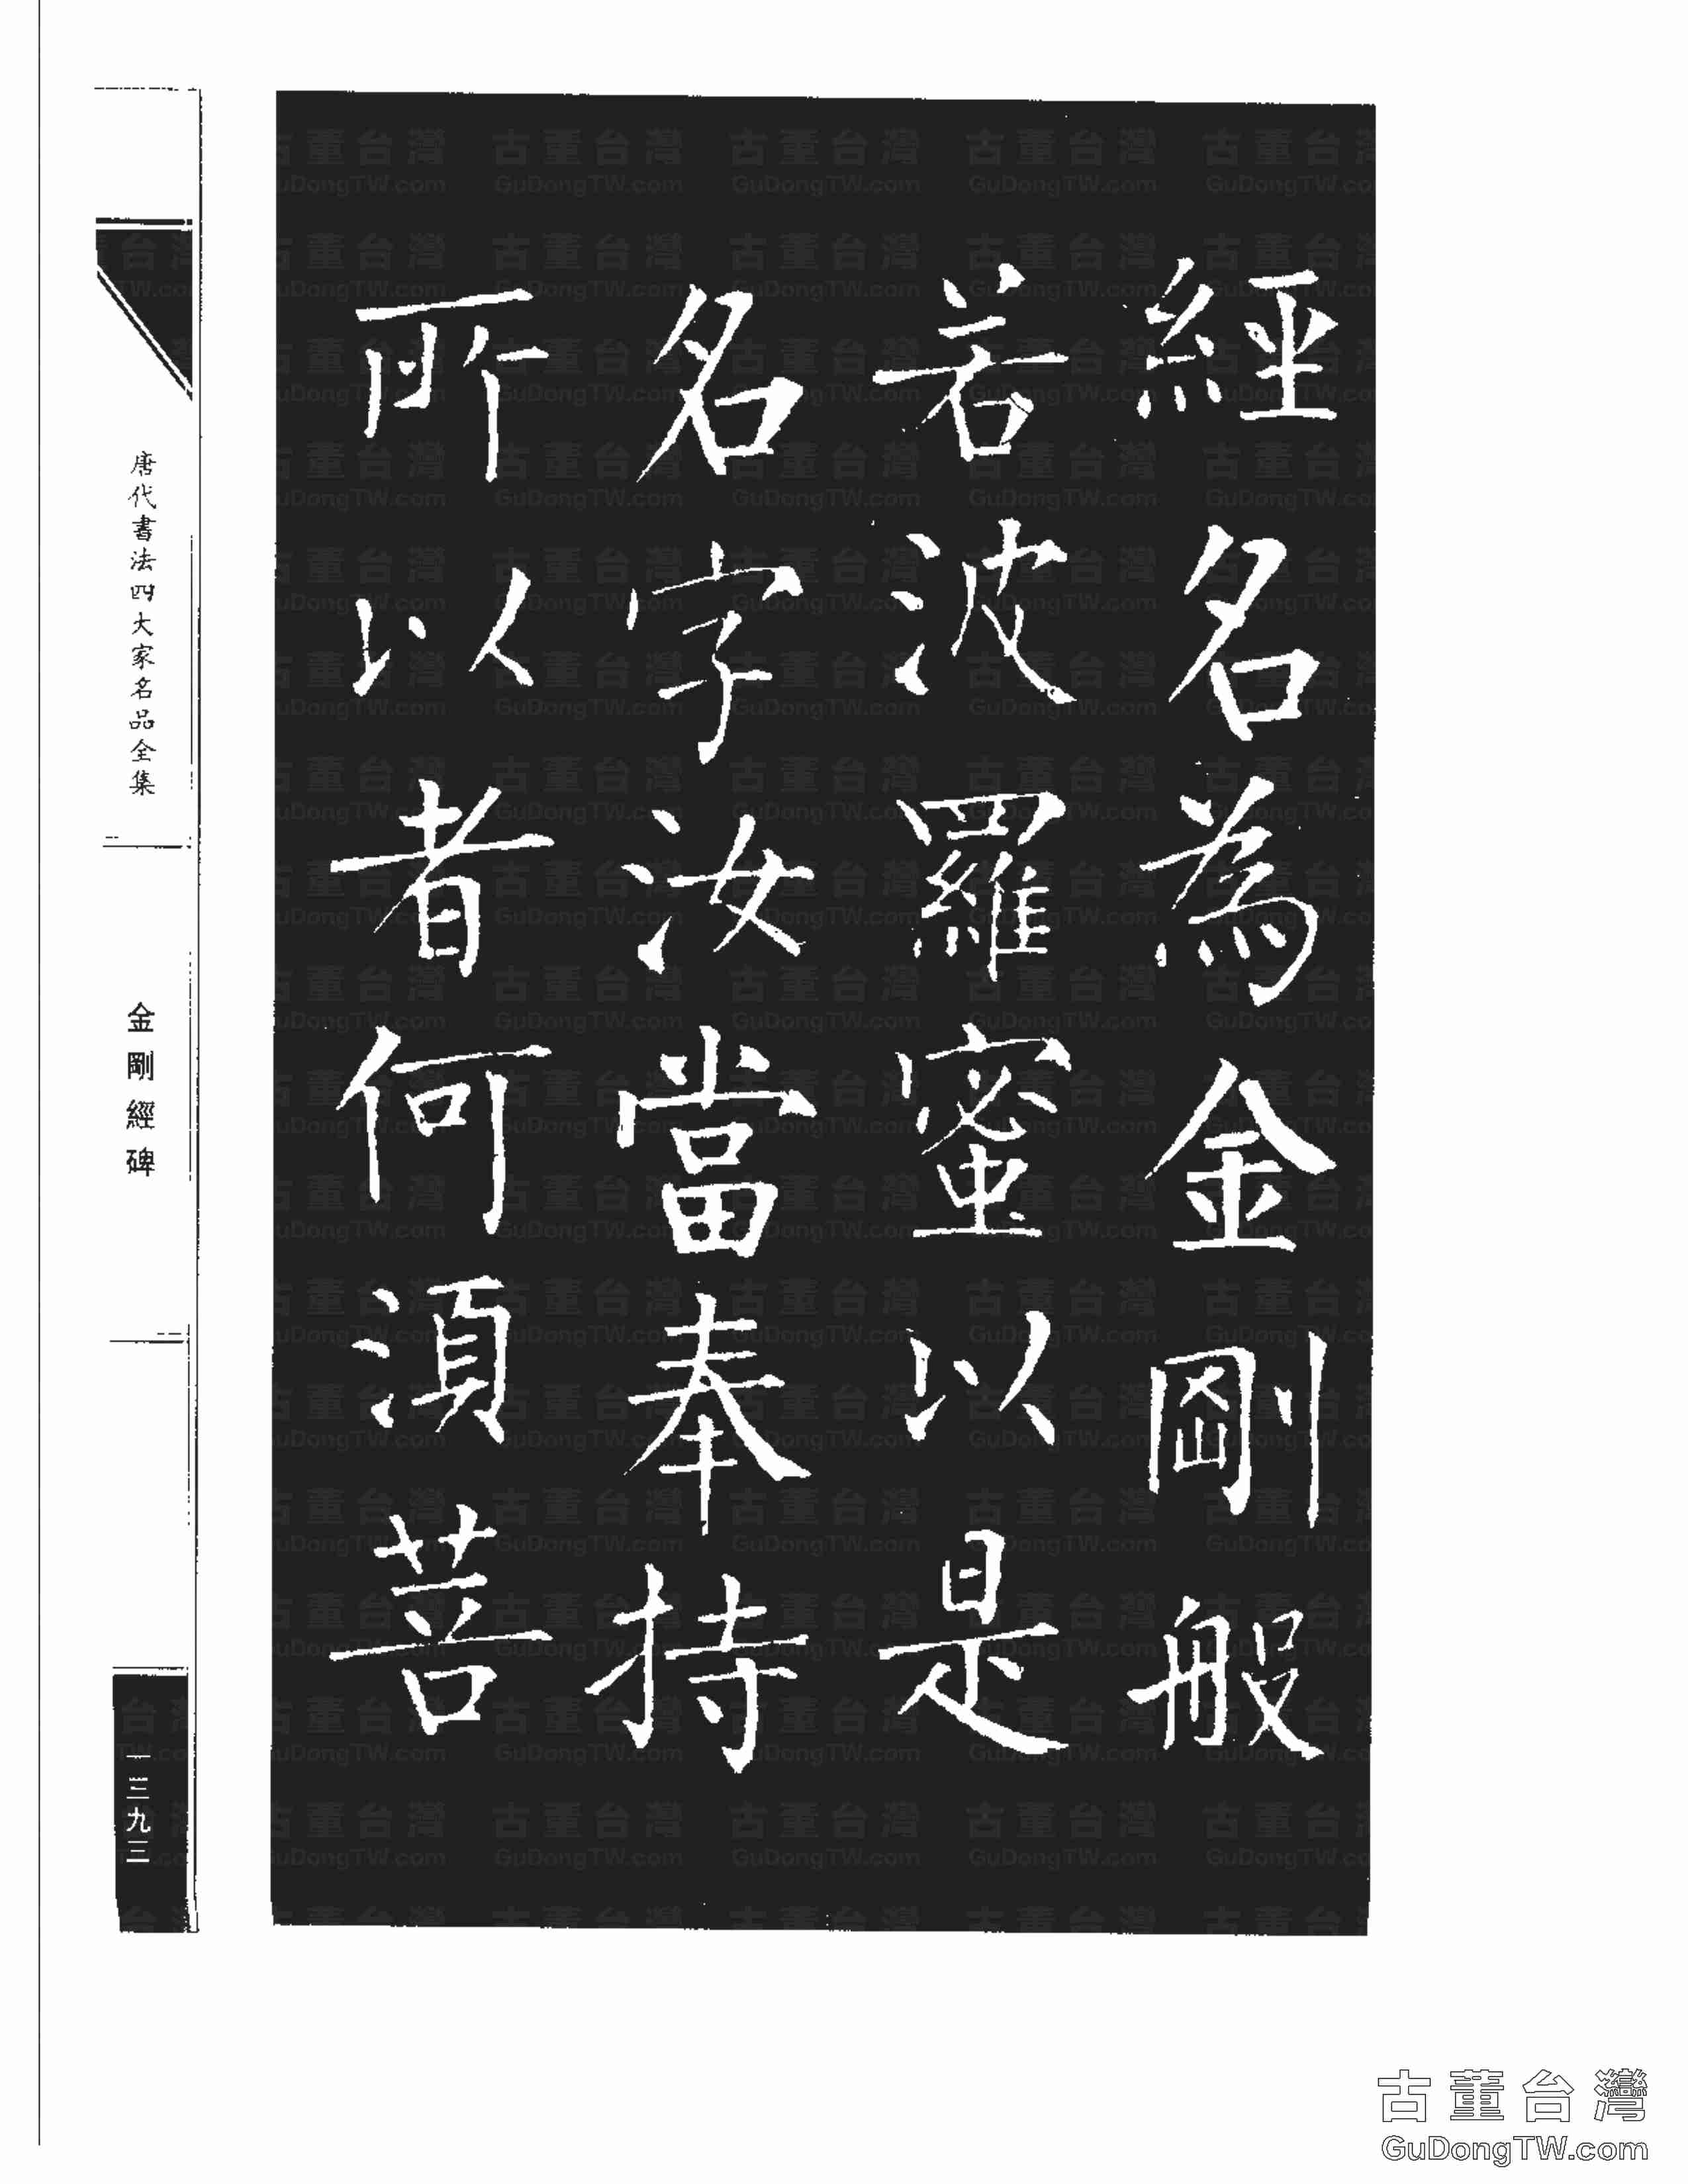 經名為金剛般
若波羅蜜以是
名字汝當奉持
所以者何湏菩
唐代書法四大家名品全集
金剛經碑
一三九三
古董台灣
GuDongTW.com